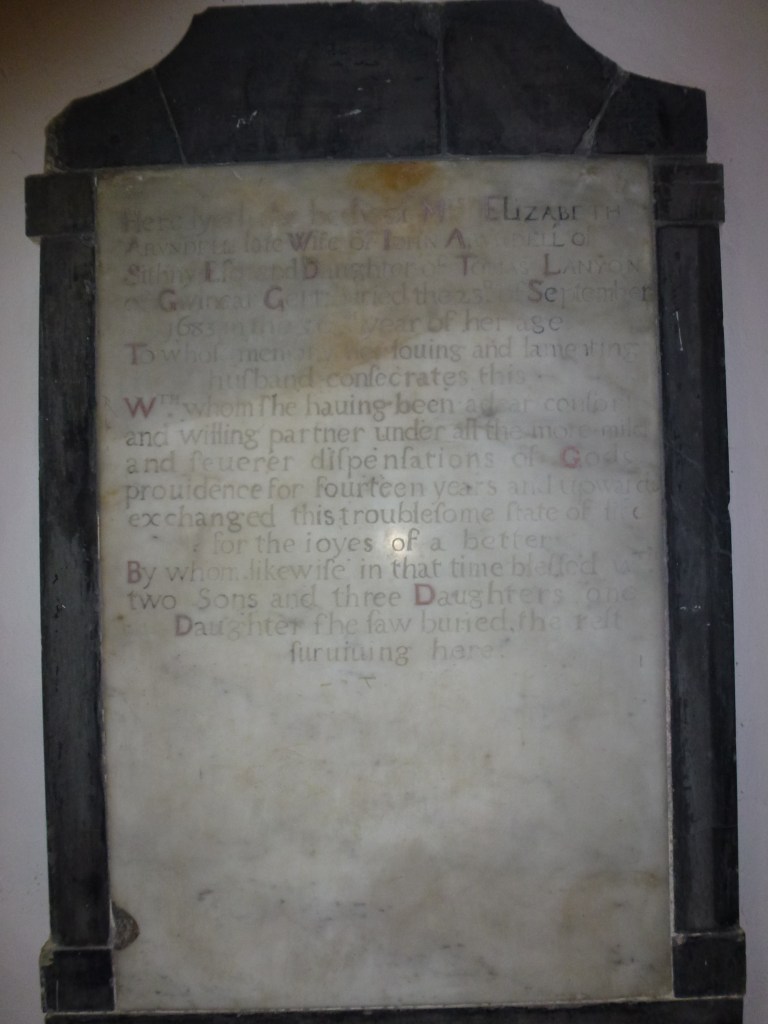 Here lyeth the body of Mrs ELIZABETH
ARUNDELL late Wife of IOHN ARUNDELL of
Sithny Esqr and Daughter of TOBIAS LANYON
of Gwinear Gent buried the 23d of September
1683 in the year of her age
To whose memory her louing and lamenting
husband consecrates this
WTH whom ſhe hauing been a dear conſort
and willing partner under all the more mild
and ſeuerer diſpenſations of Gods
prouidence for fourteen years and upward
exchanged this troubleſome ſtate of life
for the ioyes of a better
By whom likewiſe in that time bleſſed
two Sons and three Daughters one
Daughter ſhe ſaw buried, the reſt
ſuruiuing here